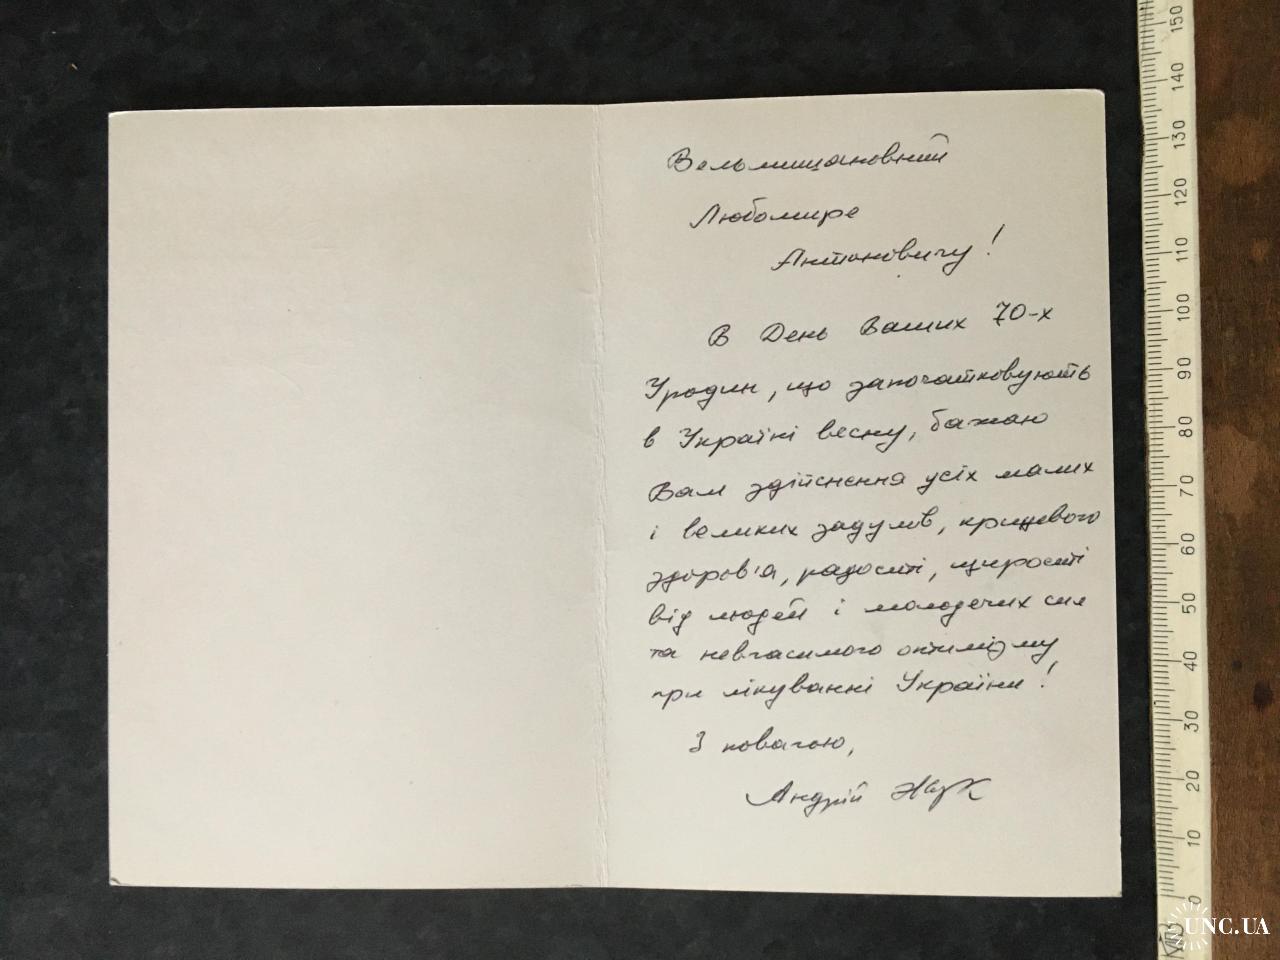 Вельмишановний
Любомире
Антоновичу!
В День Ваших 70-х
Уродин, що започатковують
в Україні весну, бажаю
Вам здійснення усіх малих
і великих задумів, крицевого
здоров'я, радості, щирості
від людей і молодечих сил
та невгасимого оптимізму
при лікуванні України!
З повагою,
Андрій Жук
150
140
130
120
110
100
90
80
70
60
50
40
30
20
10
0
UNC.UA